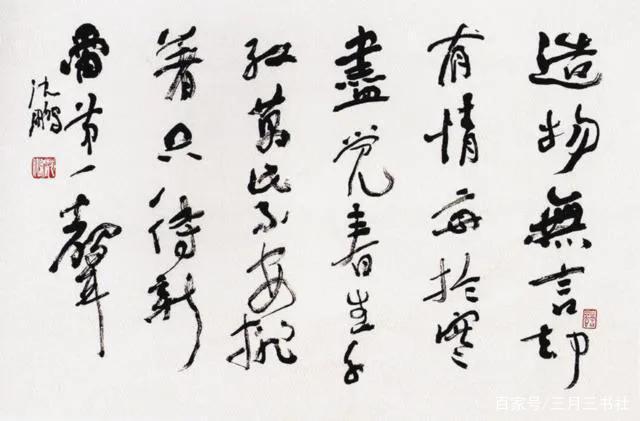 造物無言却
有情每於寒
盡觉春生千
红萬紫安排
著只待新
雷第一聲
沈鹏
百家号/三月三书社